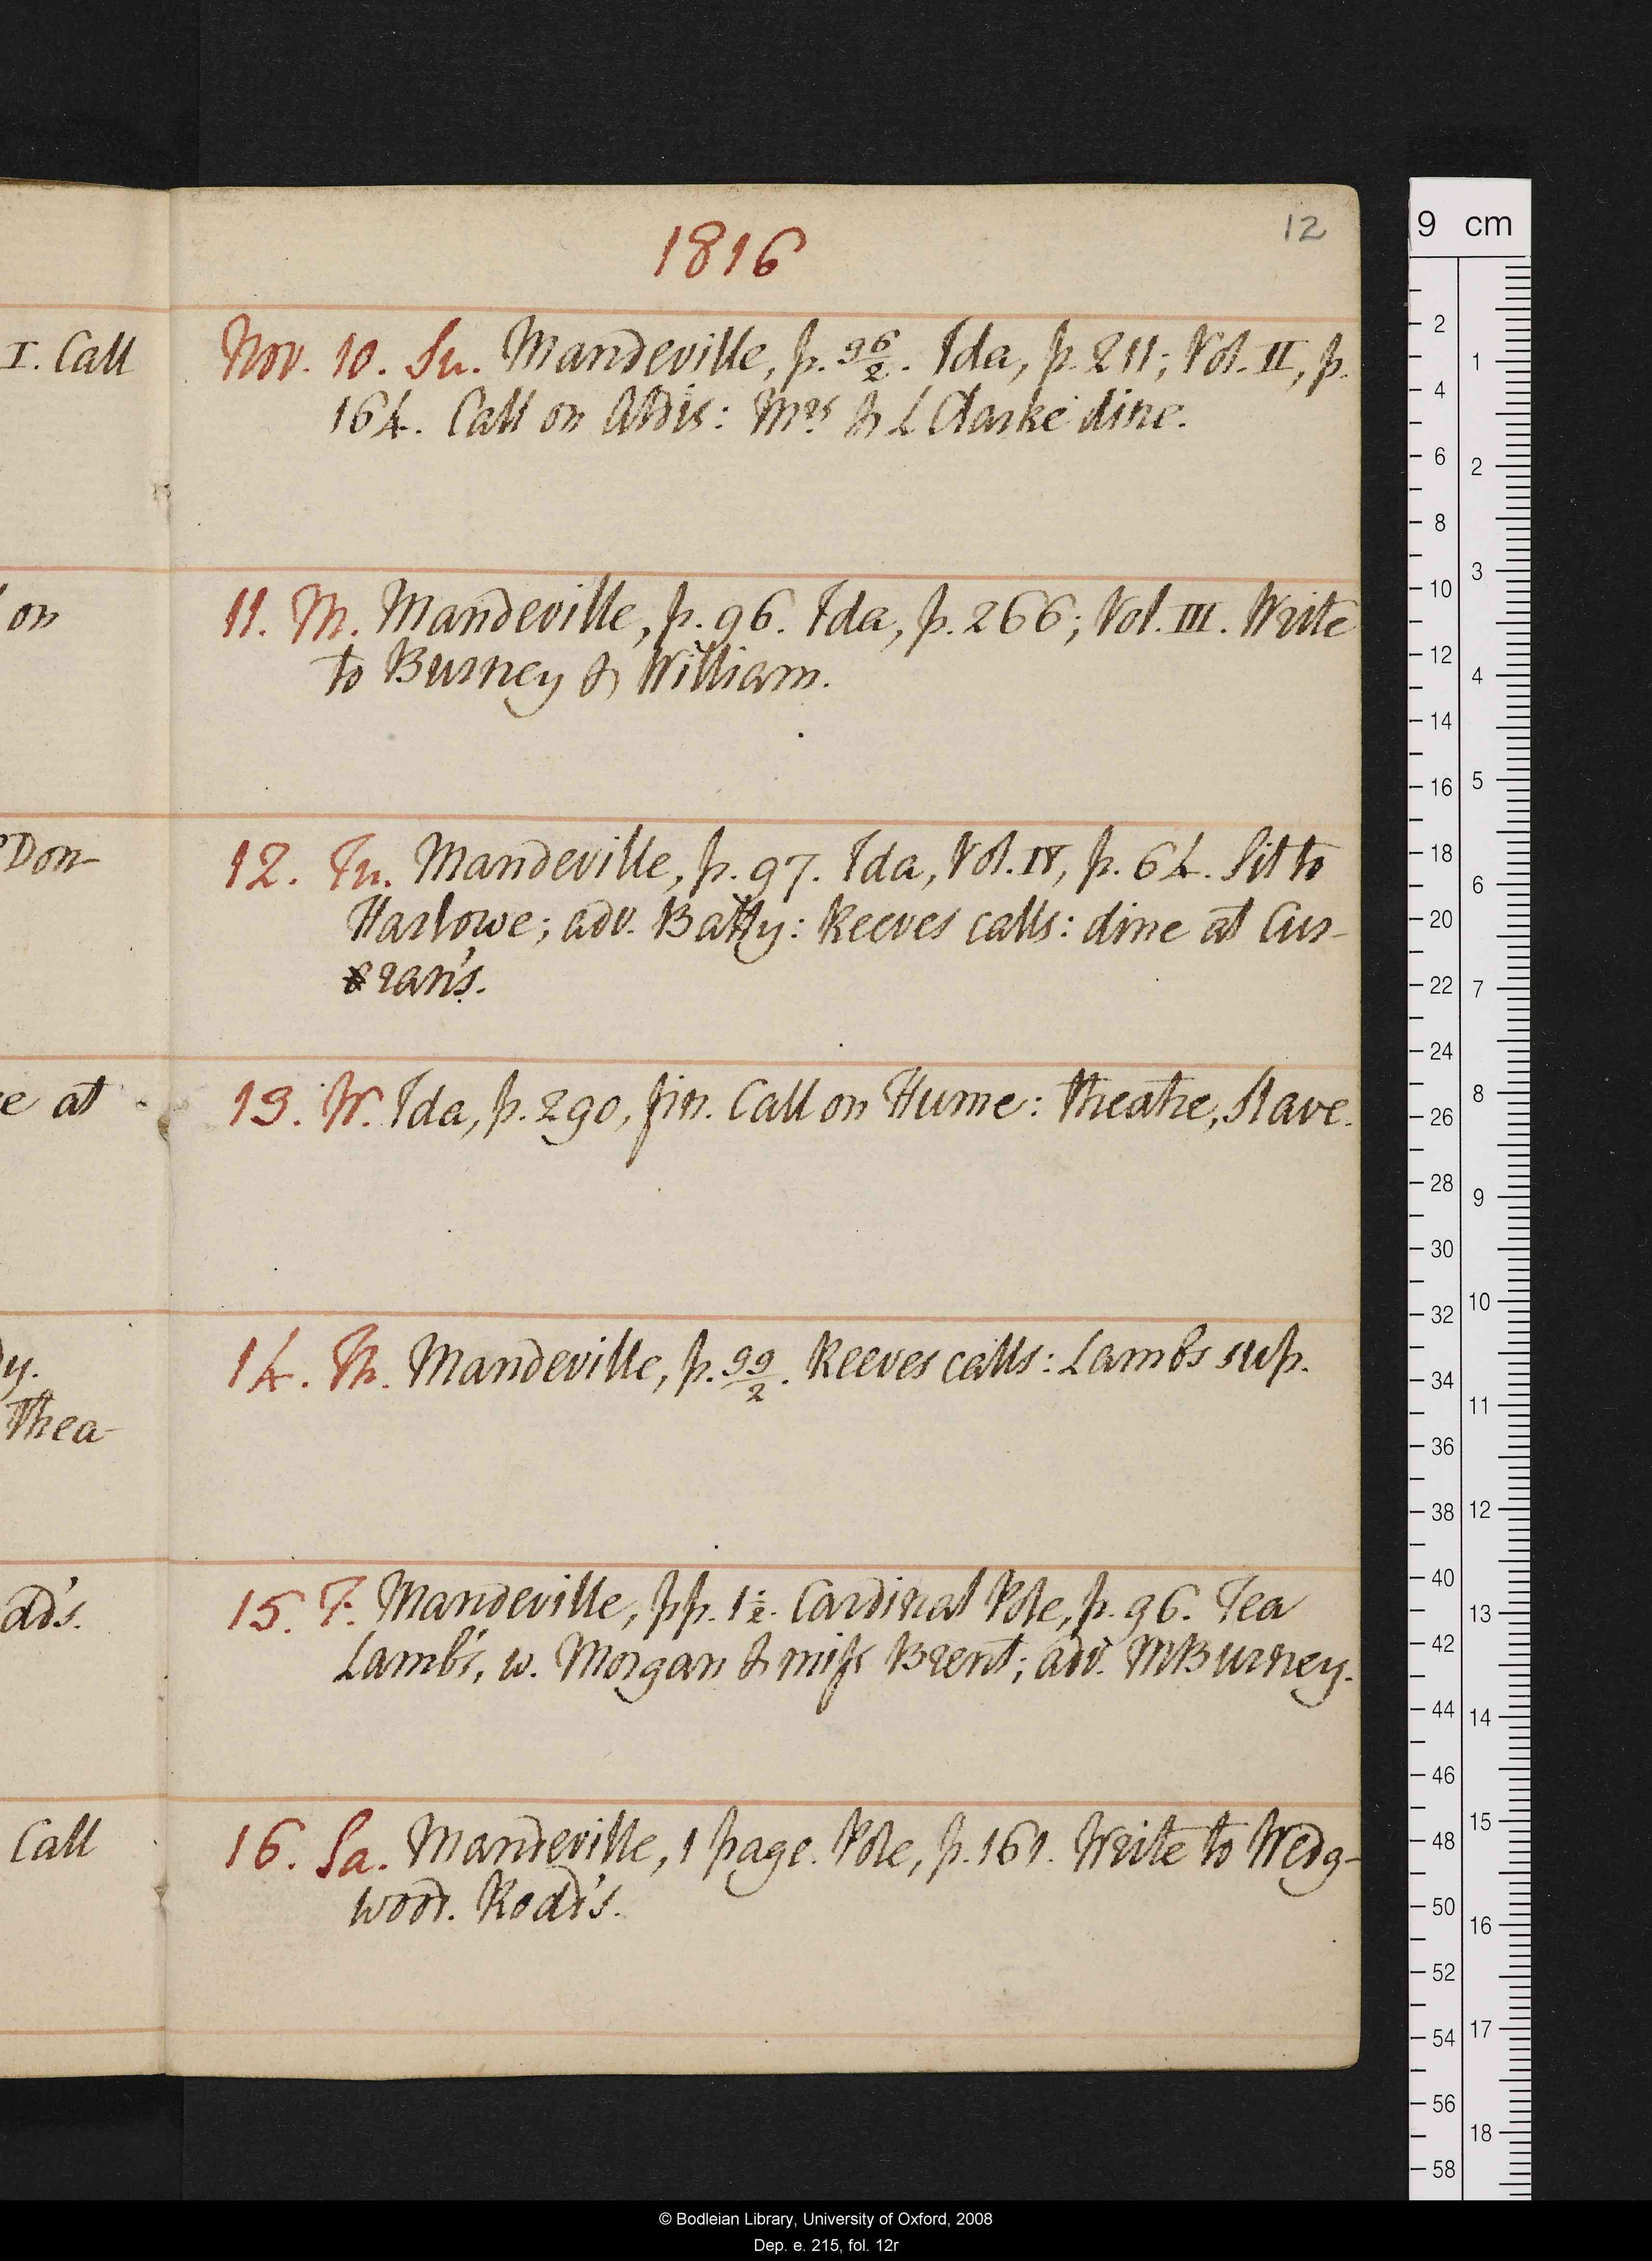 1816
12
I. Call
Nov. 10. Su. Mandeville, p. 96/2. Ida, p. 211; Vol. II, p.
164. Call on Aldis: Mrs & L Clarke dine.
on
11. M. Mandeville, p. 96. Ida, p. 266; Vol. III. Write
to Burney & William.
Don-
12. Tu. Mandeville, p. 97. Ida, Vol. IV, p. 64. Sit to
Harlowe; adv. Batty: Reeves calls: dine at Cur-
ran's.
e at
13. W. Ida, p. 290, fin. Call on Hume: theatre, Slave.
y.
Thea-
14. Th. Mandeville, p. 99/2. Reeves calls: Lambs sup.
ad's.
15. F. Mandeville, pp. 1½. Cardinal Pole, p. 96. Tea
Lamb's, w. Morgan & miss Brent; adv. MBurney.
Call
16. Sa. Mandeville, 1 page. Pole, p. 161. Write to Wedg-
wood. Rodd's.
9 cm
2
4
6
8
10
12
14
16
18
20
22
24
26
28
30
32
34
36
38
40
42
44
46
48
50
52
54
56
58
1
2
3
4
5
6
7
8
9
10
11
12
13
14
15
16
17
18
© Bodleian Library, University of Oxford, 2008
Dep. e. 215, fol. 12r